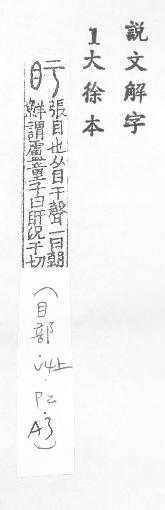 説文解字
1大徐本
張目也从目于聲一曰朝
鮮謂盧童子曰盱況于切
(目部·四上·P2·A3)